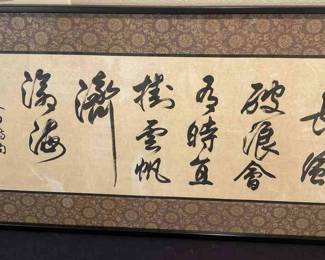 長風
破浪會
有時直
掛雲帆
濟
滄海